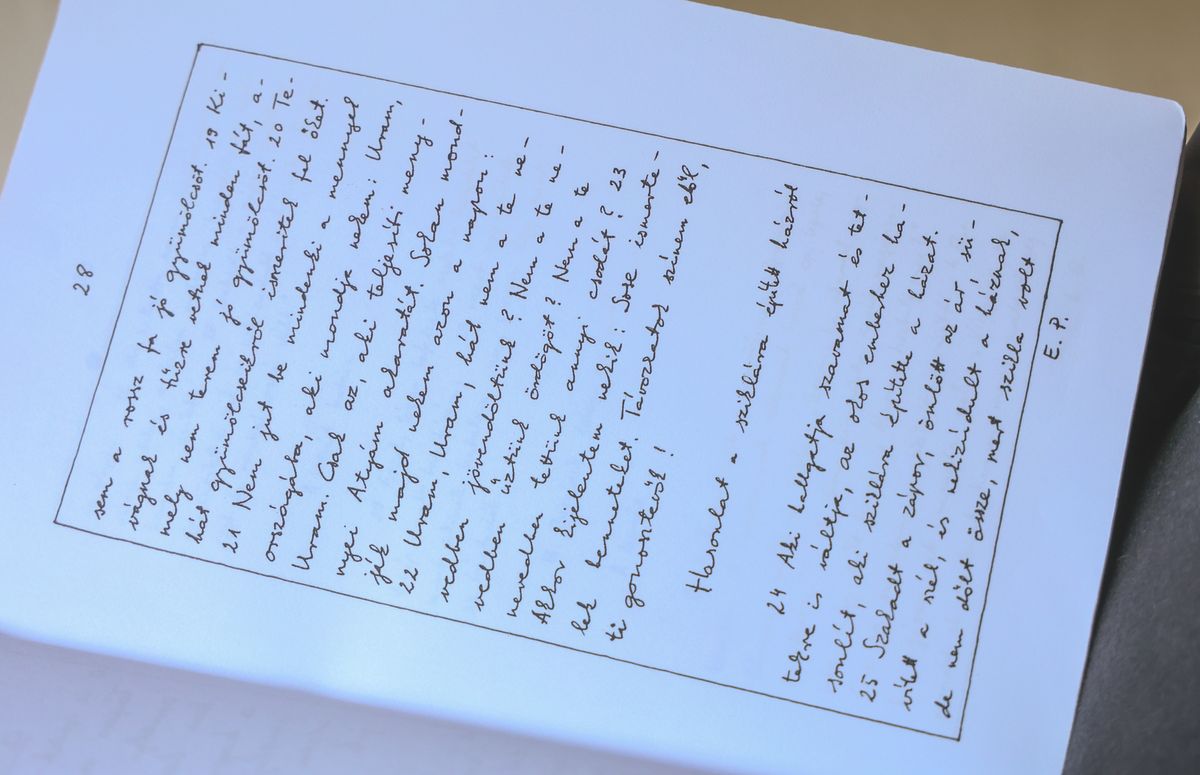 28
sem a rossz fa jó gyümölcsöt. 19 Ki-
vágnak és tűzre vetnek minden fát, a-
mely nem terem jó gyümölcsöt. 20 Te-
hát gyümölcseikről ismeritek fel őket.
21 Nem jut be mindenki a mennyek
országába, aki mondja nekem: Uram,
Uram. Csak az, aki teljesíti meny-
nyei Atyám akaratát. Sokan mond-
ják majd nekem azon a napon:
22 Uram, Uram, hát nem a te ne-
vedben jövendöltünk? Nem a te ne-
vedben űztünk ördögöt? Nem a te
nevedben tettünk annyi csodát? 23
Akkor kijelentem nekik: Sose ismerte-
lek benneteket. Távozzatok színem elől,
ti gonosztevők!
Hasonlat a sziklára épített házról
24 Aki hallgatja szavamat és tet-
tekre is váltja, az okos emberhez ha-
sonlít, aki sziklára építette a házát.
25 Szakadt a zápor, ömlött az ár sü-
vített a szél, és nekizúdult a háznak,
de nem dőlt össze, mert szikla volt
E. P.